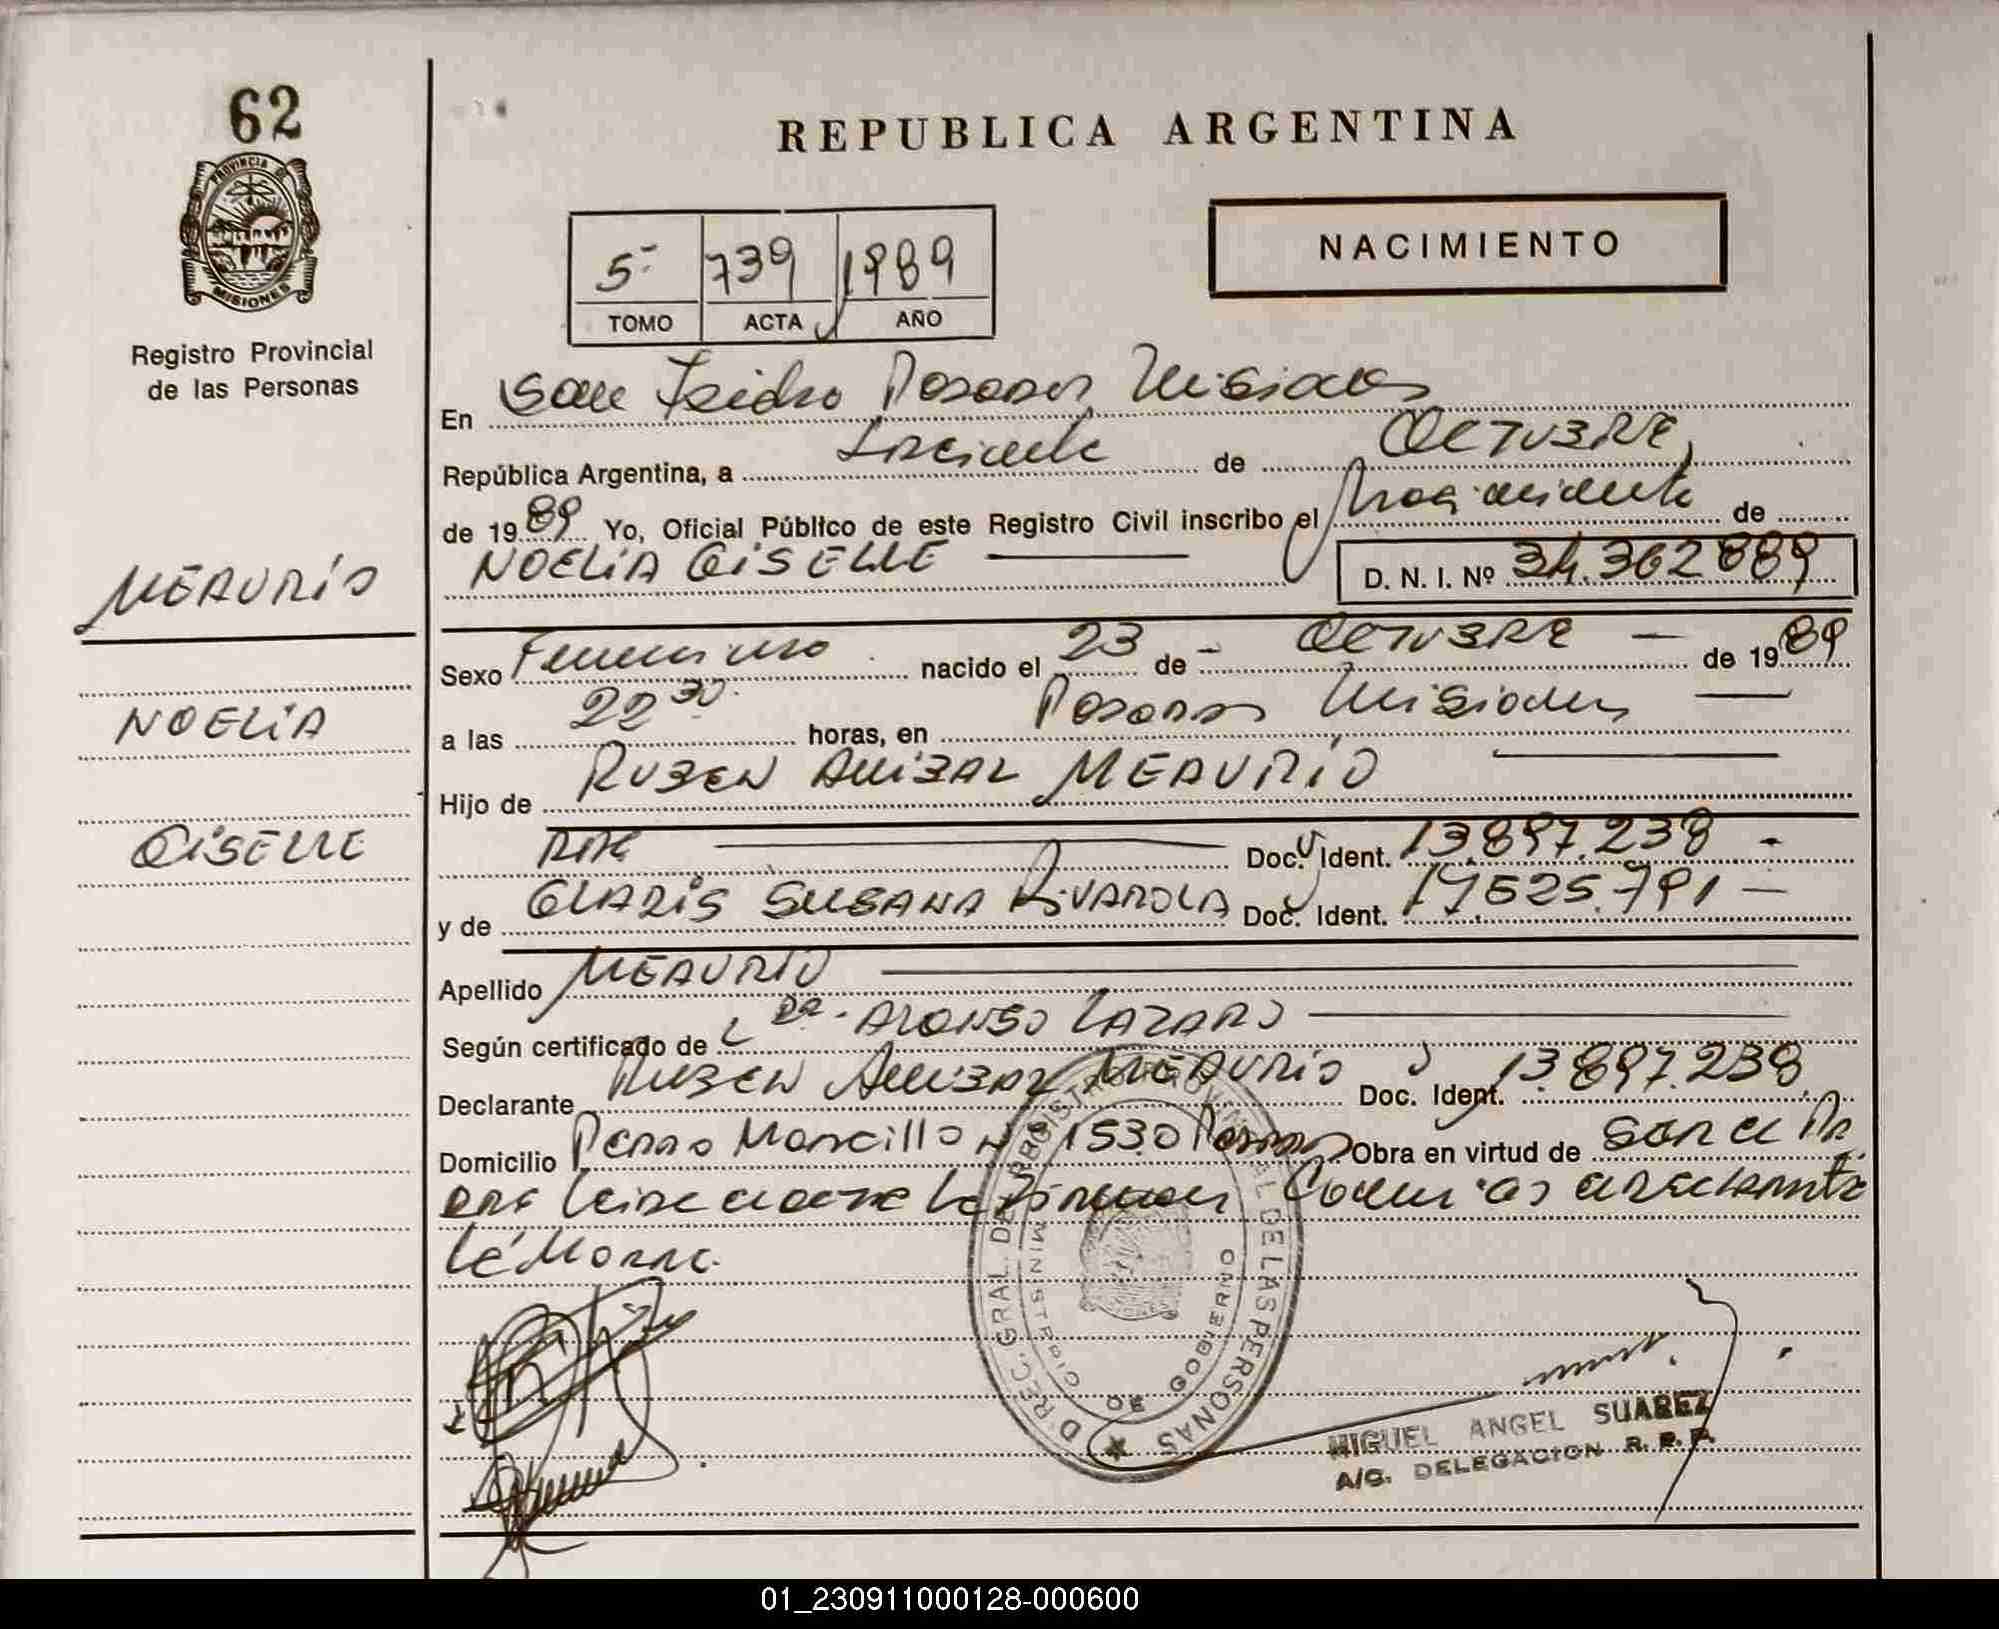 62
PROVINCIA DE
MISIONES
Registro Provincial
de las Personas
REPUBLICA ARGENTINA
NACIMIENTO
5- 739 1989
TOMO ACTA AÑO
En San Isidro Posadas Misiones
República Argentina, a treinta de OCTUBRE
de 1989 Yo, Oficial Público de este Registro Civil inscribo el Nacimiento de
NOELIA GISELLE
D. N. I. Nº 34.362889
MEAURIO
NOELIA
GISELLE
Sexo Femenino nacido el 23 - de - OCTUBRE - de 1989
a las 22 30 horas, en Posadas Misiones
Hijo de RUBEN ANIBAL MEAURIO
ARG Doc. Ident. 13.897.238 -
y de GLADIS SUSANA RIVAROLA Doc. Ident. 17.525.791 -
Apellido MEAURIO
Según certificado de Dr. ALONSO LAZARO
Declarante RUBEN ANIBAL MEAURIO Doc. Ident. 13.897.238
Domicilio 1530 Posadas Obra en virtud de
DIREC. GRAL DE REGISTRO PROVINCIAL DE LAS PERSONAS
MINISTERIO DE GOBIERNO
MIGUEL ANGEL SUAREZ
A/C. DELEGACION R. P. P.
01_230911000128-000600